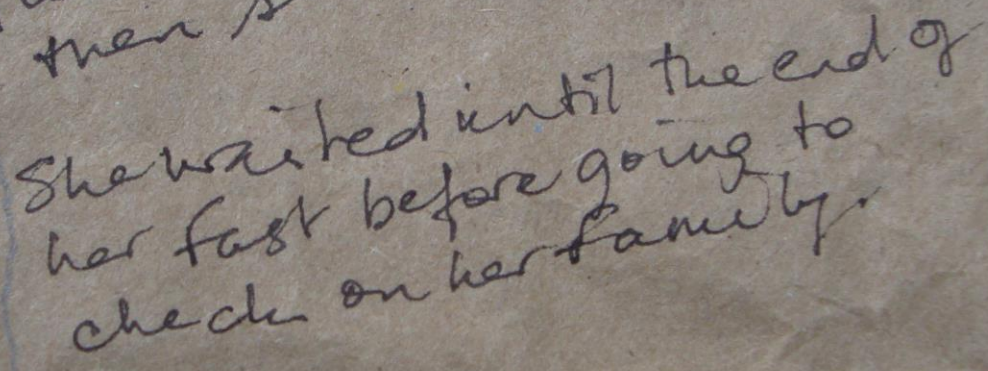 then s
She waited until the end of
her fast before going to
check on her family.